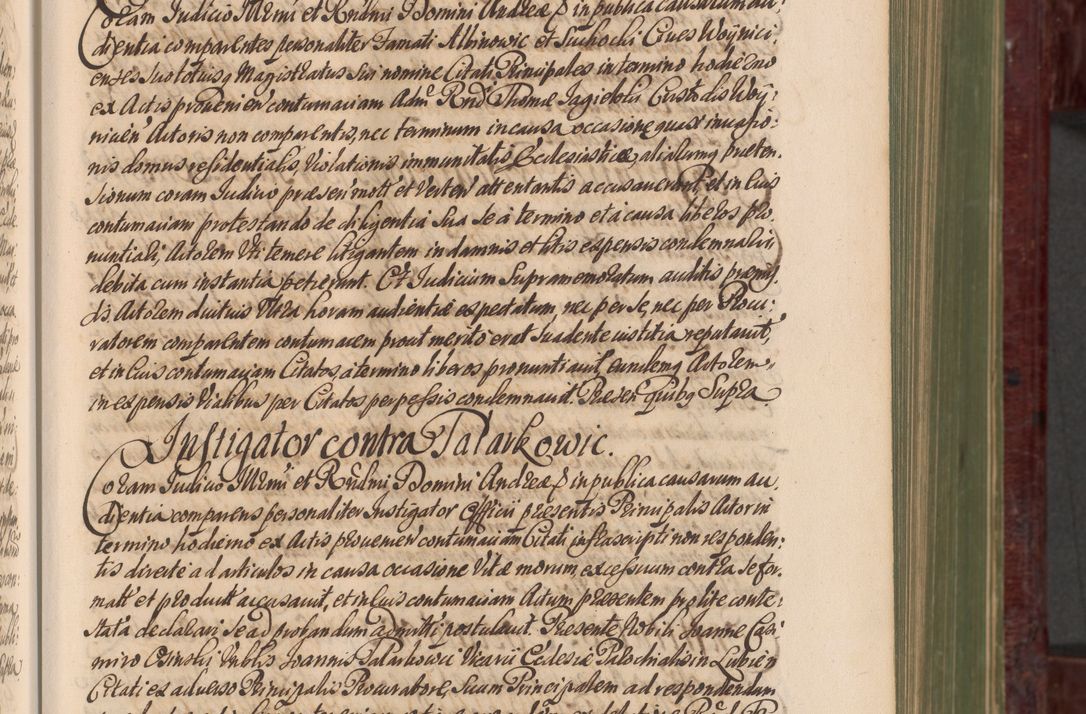 Coram Judicio Illrmi et Rndmi Domini Andreæ &c in publica causarum au:
dientia comparentes personaliter Famati Albinowic et Suchocki Cives Woynici:
enses suo totiusq Magistratus sui nomine Citati Principales in termino hodierno
ex Actis provenien contumaciam Admo Rndi Thomæ Jagielski Custodis Woy:
nicien Actoris non comparentis, nec terminum in causa occasione quasi invasio:
nis domus residentialis, violationis immunitatis Ecclesiasticæ aliarumq præten:
sionum coram Judicio præsen mott et verten attentantis accusaverunt, et in ejus
contumaciam protestando de diligentia sua se a termino et a causa liberos pro:
nuntiari, Actorem uti temere litigantem in damnis et litis expensis condemnari
debita cum instantia petierunt. Et Judicium supramemoratum auditis præmis:
sis Actorem diutius ultra horam audientiæ expectatum, nec per se, nec per Procu:
ratorem comparentem contumacem prout merito erat suadente justitia reputavit,
et in ejus contumaciam Citatos a termino liberos pronuntiavit, eundemq Actorem
in expensis vialibus per Citatos perpessis condemnavit. Præsen quibq supra
Instigator contra Talarkowic.
Coram Judicio Illrmi et Rndmi Domini Andreæ &c in publica causarum au:
dientia comparens personaliter Instigator Officii præsentis Principalis Actor in
termino hodierno ex Actis provenien contumaciam Citati infrascripti non responden:
tis directe ad articulos in causa occasione vitæ morum, excessuum contra se for:
matt et product accusavit, et in ejus contumaciam Actum præsentem pro lite conte:
stata declarari, se ad probandum admitti postulavit. Præsente Nobili Joanne Casi:
miro Osinski Vrblis Joannis Talarkowic Vicarii Ecclesiæ Parochialis in Lubien
Citati ex adverso Principalis Procuratore, suum Principalem ad respondendum